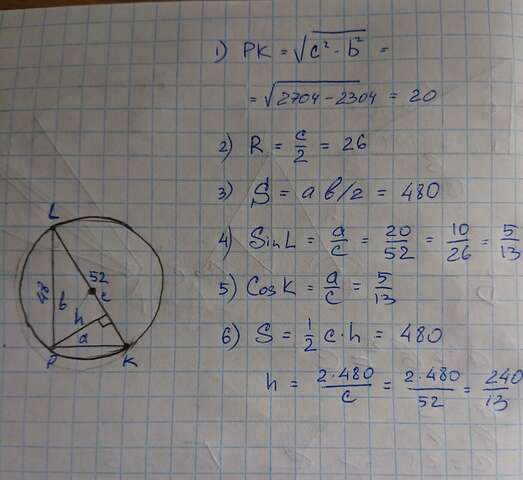 1) PK = √(c² - b²) =
= √(2704 - 2304) = 20
2) R = c/2 = 26
3) S = ab/2 = 480
4) Sin L = a/c = 20/52 = 10/26 = 5/13
5) Cos K = a/c = 5/13
6) S = 1/2 c·h = 480
h = 2·480/c = 2·480/52 = 240/13
L
52
48
b
c
h
a
P
K